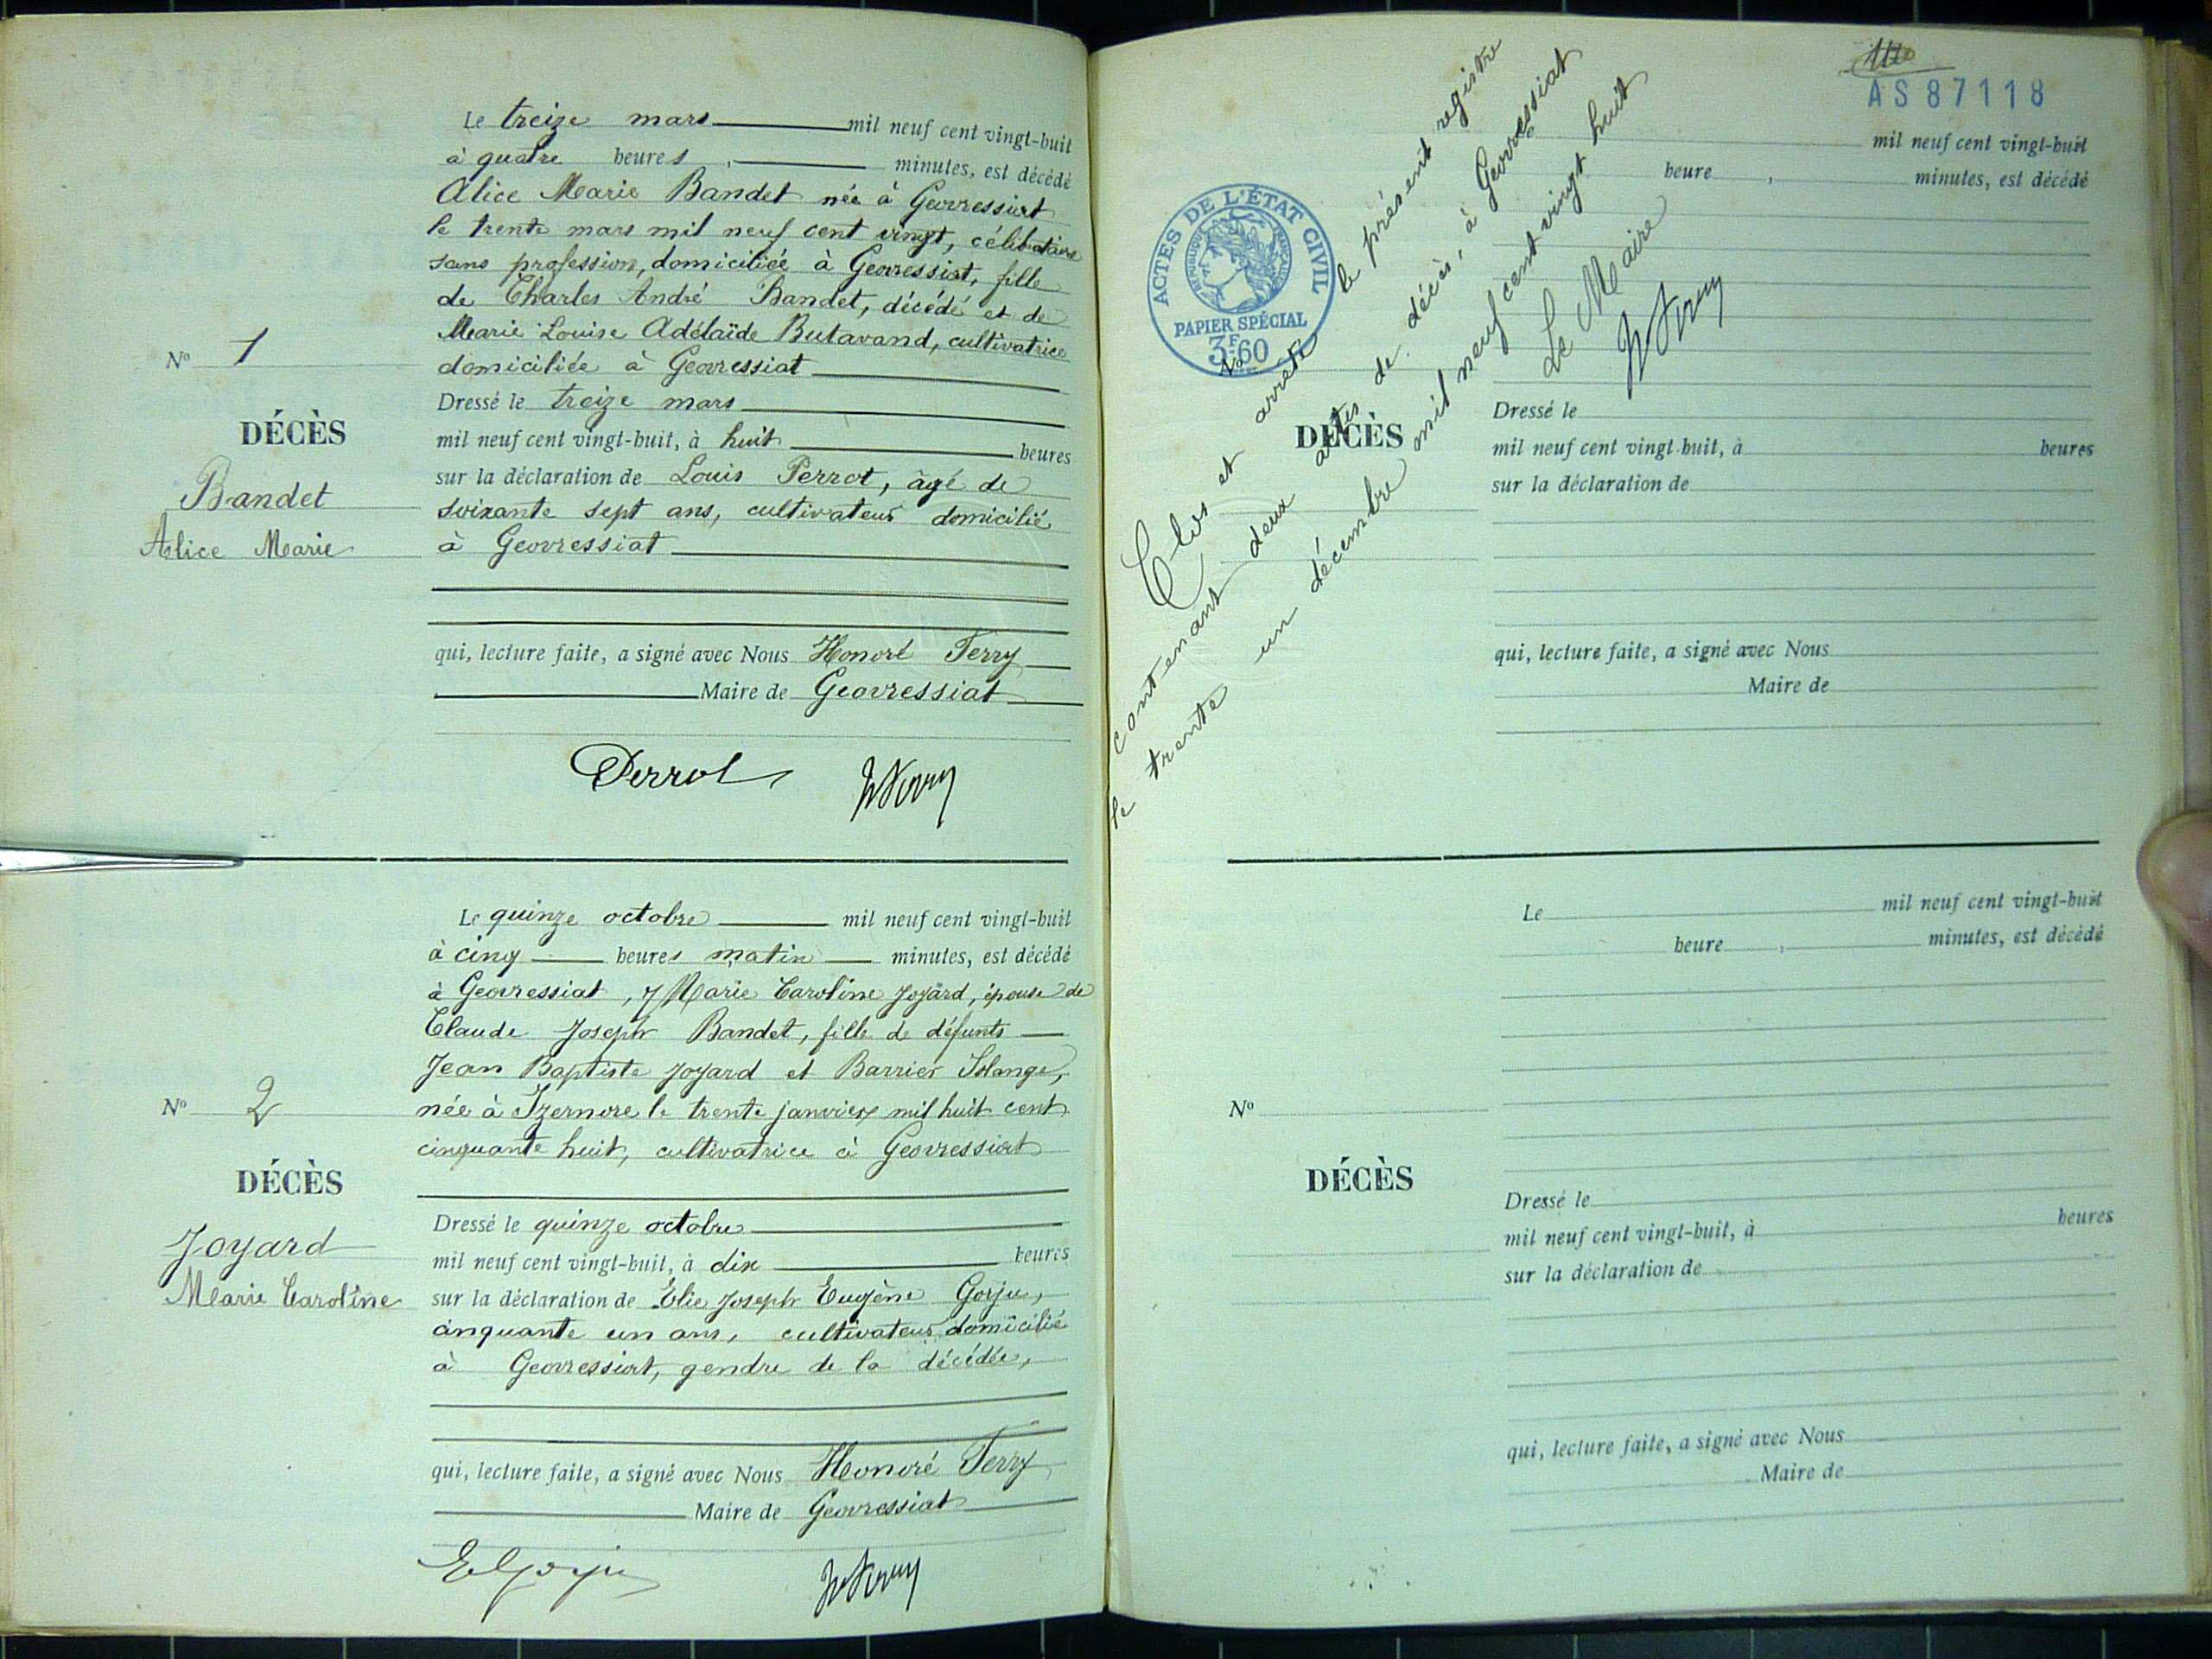 Le treize mars mil neuf cent vingt-huit
à quatre heures , minutes, est décédé
Alice Marie Bandet née à Geovressiat
le trente mars mil neuf cent vingt, célibataire
sans profession, domiciliée à Geovressiat, fille
de Charles André Bandet, décédé et de
Marie Louise Adélaïde Butavand, cultivatrice
domiciliée à Geovressiat
Nº 1
DÉCÈS
Bandet
Alice Marie
Dressé le treize mars
mil neuf cent vingt-huit, à huit heures
sur la déclaration de Louis Perrot, âgé de
soixante sept ans, cultivateur domicilié
à Geovressiat
qui, lecture faite, a signé avec Nous Honoré Ferry
Maire de Geovressiat
Perrot
Le quinze octobre mil neuf cent vingt-huit
à cinq heures matin minutes, est décédé
à Geovressiat, Marie Caroline Joyard, épouse de
Claude Joseph Bandet, fille de défunts
Jean Baptiste Joyard et Barrier Solange,
née à Izernore le trente janvier mil huit cent
cinquante huit, cultivatrice à Geovressiat
Nº 2
DÉCÈS
Joyard
Marie Caroline
Dressé le quinze octobre
mil neuf cent vingt-huit, à dix heures
sur la déclaration de Élie Joseph Eugène Gorju,
cinquante un ans, cultivateur domicilié
à Geovressiat, gendre de la décédée,
qui, lecture faite, a signé avec Nous Honoré Ferry
Maire de Geovressiat
E Gorju
AS 87118
ACTES DE L'ÉTAT CIVIL
RÉPUBLIQUE FRANÇAISE
PAPIER SPÉCIAL
3F.60
Clos et arrêté le présent registre
contenant deux actes de décès, à Geovressiat
le trente un décembre mil neuf cent vingt huit
Le Maire
Le mil neuf cent vingt-huit
heure , minutes, est décédé
Nº
DÉCÈS
Dressé le
mil neuf cent vingt-huit, à heures
sur la déclaration de
qui, lecture faite, a signé avec Nous
Maire de
Le mil neuf cent vingt-huit
heure , minutes, est décédé
Nº
DÉCÈS
Dressé le
mil neuf cent vingt-huit, à heures
sur la déclaration de
qui, lecture faite, a signé avec Nous
Maire de